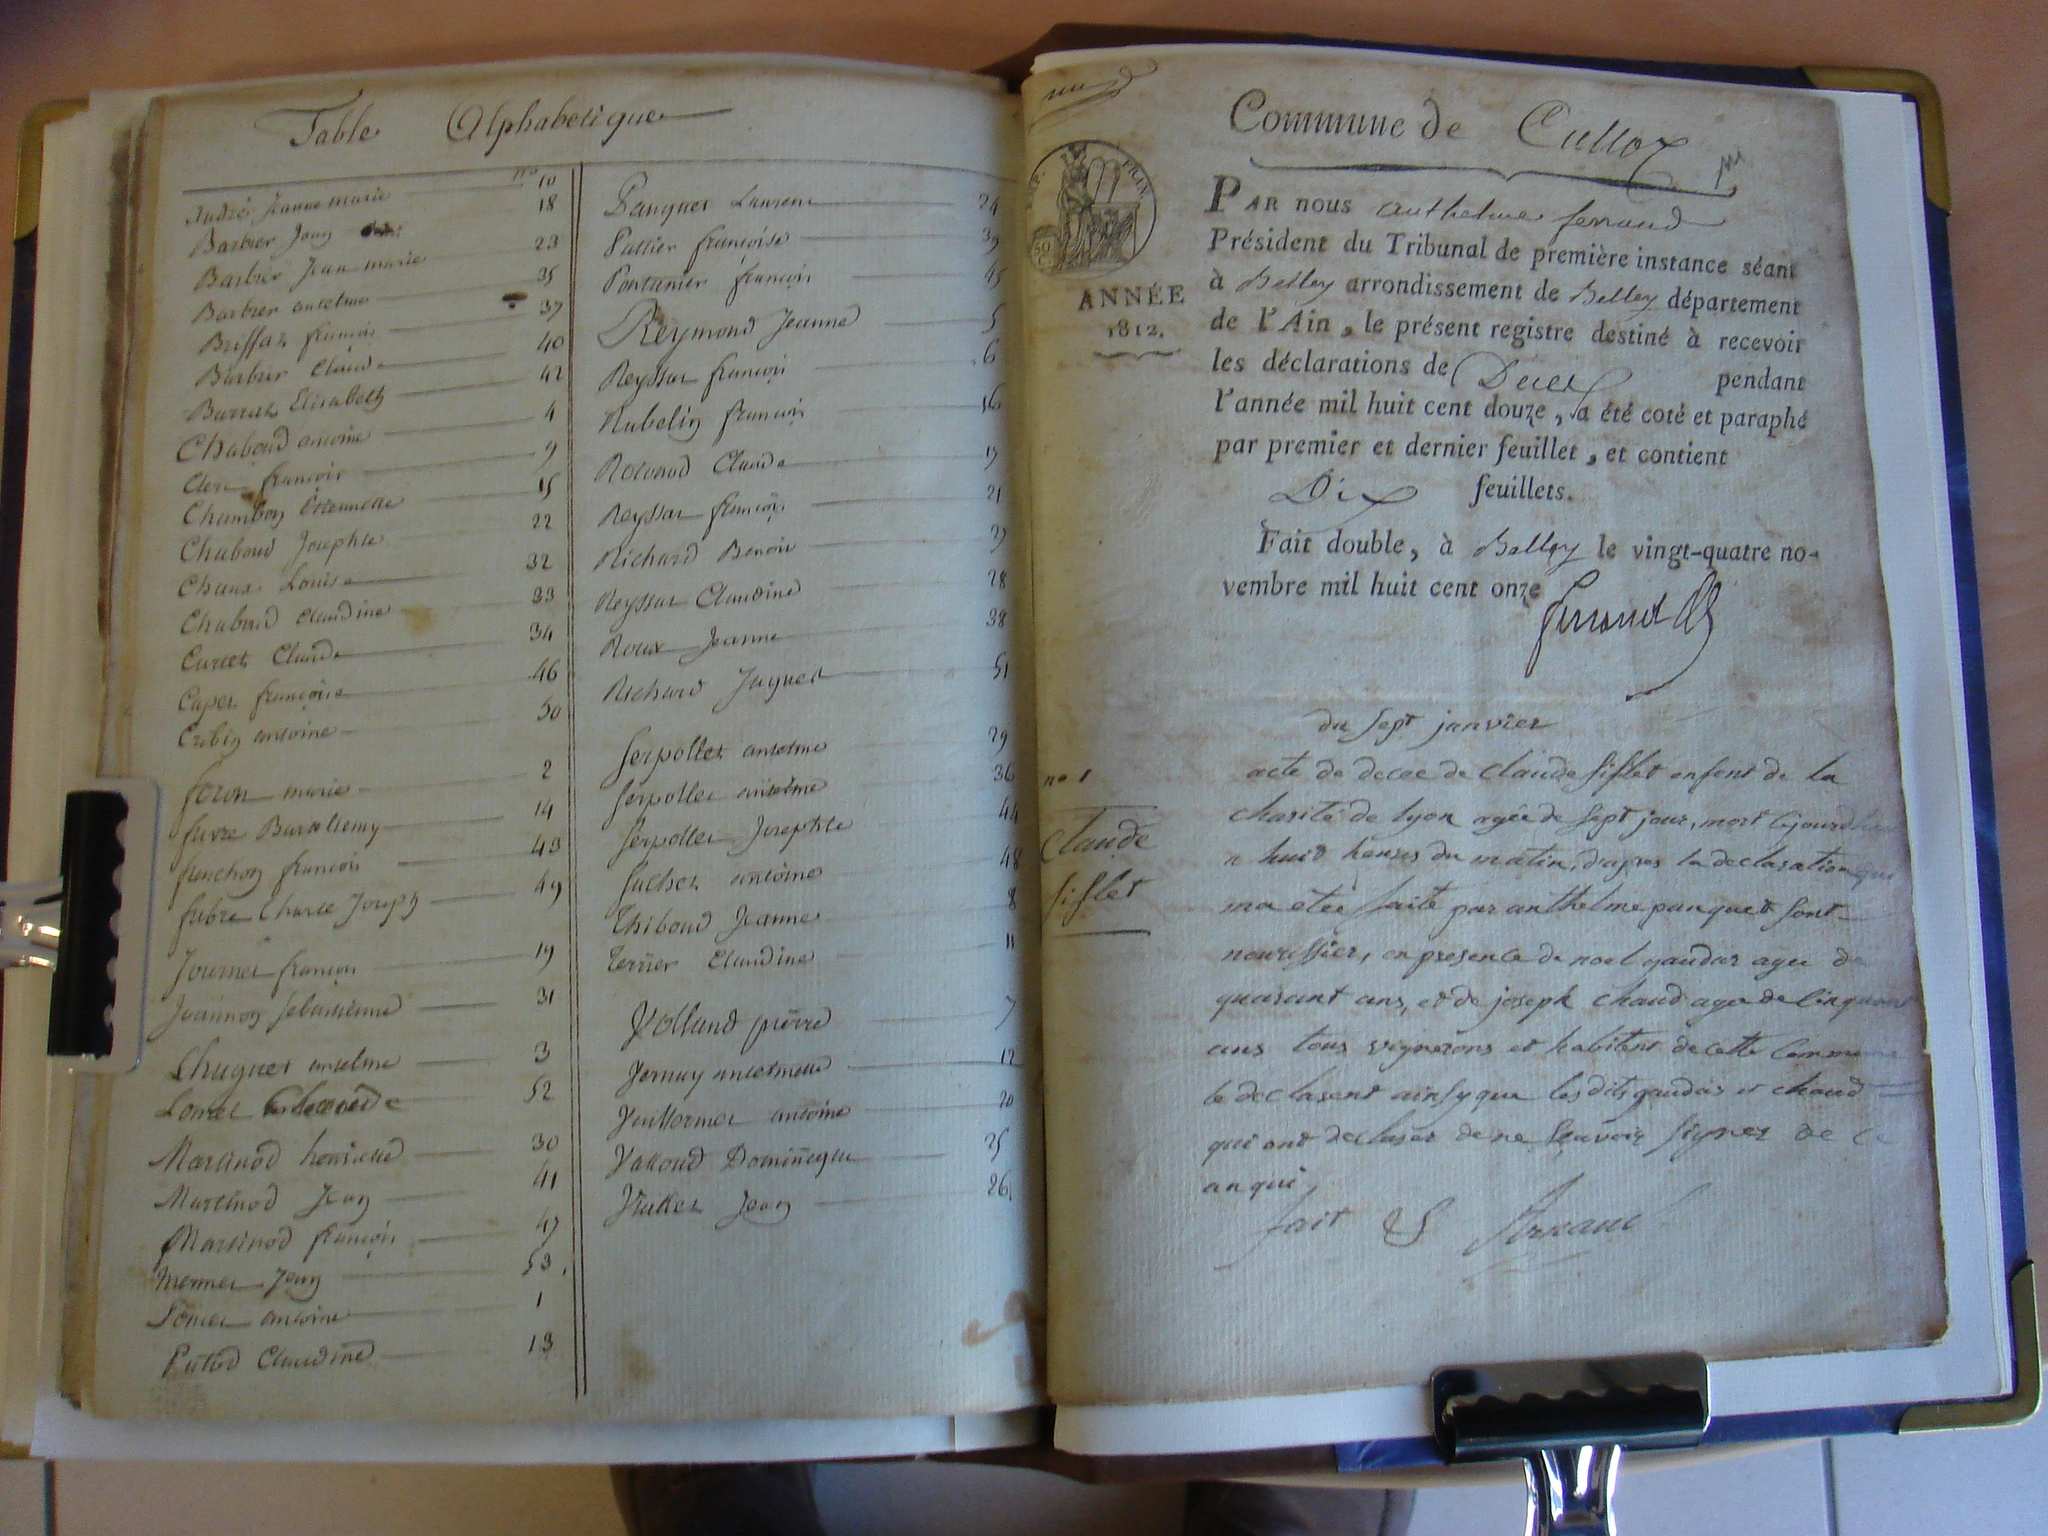 Table Alphabetique
nos
André Jeanne marie 10
Barbier Jean 18
Barbier Jean marie 23
Barbier anselme 35
Brissaz françois 37
Barbier Claude 40
Burraz Elisabeth 42
Chaboud antoine 4
Clerc françois 9
Chambon Etiennette 15
Chaboud Josephte 22
Chanux Louise 32
Chaboud claudine 33
Curtet Claude 34
Capet françoise 46
Crebin antoine 50
feron marie 2
favre Bartelemy 14
fenchon françois 43
fabre Charle Joseph 49
Journet françois 19
Joannon sebastienne 31
Lhuguet anselme 3
Lomet 52
Martinod henriette 30
Martinod Jean 41
Martinod françois 47
Monnet Jean 53
Pomet antoine 1
Putod Claudine 13
Panquet Laurent 24
Pattier françoise 39
Pontanier françois 45
Reymond Jeanne 5
Reyssar françois 6
Rubelin françois 16
Rowaud Claude 17
Reyssar françois 21
Richard Benoit 27
Reyssar Claudine 28
Roux Jeanne 38
Richard Jaques 51
Serpollet anselme 29
Serpollet anselme 36
Serpollet Josephte 44
Suchet antoine 48
Thiboud Jeanne 8
Terrier Claudine 11
Volland pierre 7
Vernay anselmette 12
Vuillermet antoine 20
Valloud Dominique 25
Vuillet Jean 26
EMP. FRAN.
50 C
ANNÉE
1812.
Commune de Culloz
PAR nous anthelme ferrand
Président du Tribunal de première instance séant
à Belley arrondissement de Belley département
de l'Ain, le présent registre destiné à recevoir
les déclarations de Deces pendant
l'année mil huit cent douze, a été coté et paraphé
par premier et dernier feuillet, et contient
Dix feuillets.
Fait double, à Belley le vingt-quatre no-
vembre mil huit cent onze
ferrand
du sept janvier
no 1
Claude
siflet
acte de decee de claude siflet enfent de la
charité de lyon agée de sept jour, mort cejourdhui
a huit heures du matin, dapres la declaration qui
ma etée faite par anthelme panquet sont
nourissier, en presence de noel gaudas agee de
quarant ans, et de joseph chaud agee de cinquant
ans tous vignerons et habitent de cette commune
le declarent ainsy que les dits gaudas et chaud
qui ont declarer de ne scavoir signer de ce
anquis
fait & Arnaud